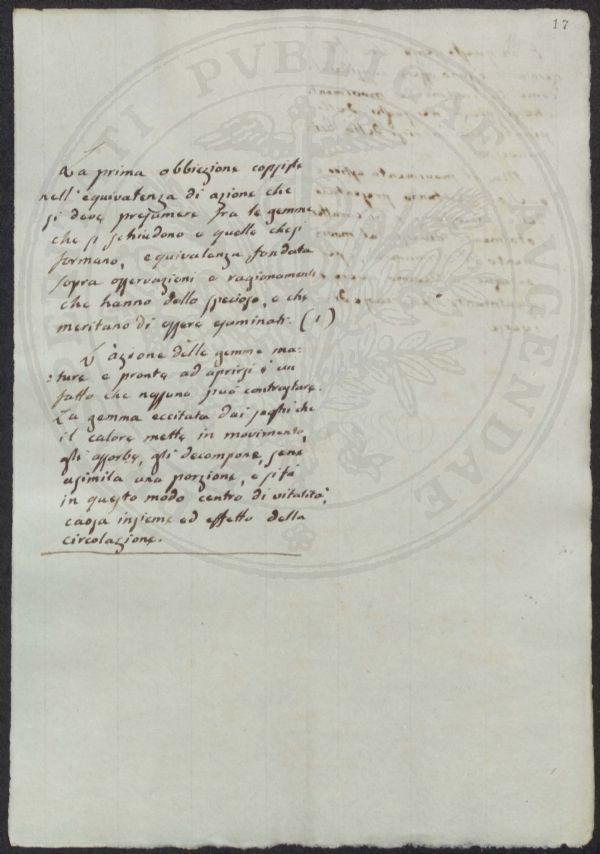 17
La prima obbiezione consiste
nell'equivalenza di azione che
si deve presumere fra le gemme
che si schiudono e quelle che si
formano, equivalenza fondata
sopra osservazioni e ragionamenti
che hanno dello specioso, e che
meritano di essere esaminati. (1)
L'azione delle gemme ma:
:ture e pronte ad aprirsi è un
fatto che nessuno può contrastare.
La gemma eccitata dai soghi che
il calore mette in movimento,
gli assorbe, gli decompone, sene
asimila una porzione, e si fà
in questo modo centro di vitalità,
caosa insieme ed effetto della
circolazione.
PUBLICAE
AUGENDAE